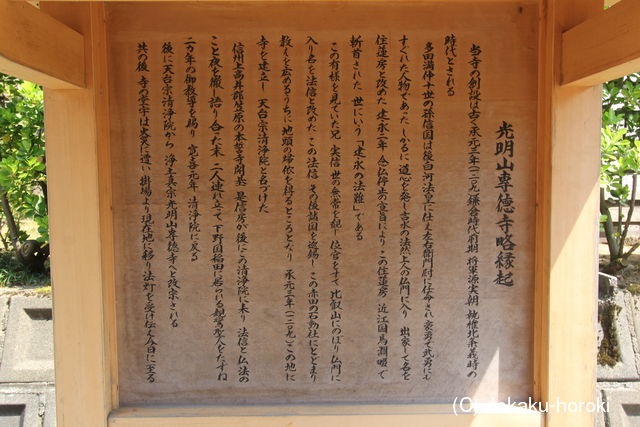 光明山専徳寺略縁起
当寺の創始は古く承元三年(一二〇九)鎌倉時代前期 将軍源実朝 執権北条義時の
時代とされる
多田満仲十世の孫信国は後白河法皇に仕え左衛門尉に任命され 豪勇で武勇にも
すぐれた人物であった しかるに道心を発し吉水の法然上人の仏門に入り 出家して名を
住蓮房と改めた 建永二年 念仏停止の宣旨により この住蓮房 近江国馬渕畷で
斬首された 世にいう「建永の法難」である
この有様を見ていた兄 実信 世の無常を観じ 位官をすて 比叡山にのぼり仏門に
入り名を法信と改めた この法信 その後諸国を遊錫し この赤田の石動社にとどまり
教えを広めるうちに 地頭の帰依を得るところとなり 承元三年(一二〇九)この地に
寺を建立し 天台宗清浄院と名づけた
信州上高井郡笠原の本誓寺開基 是信房が後にこの清浄院に来り 法信と仏法の
こと夜を徹し 語り合った末 二人連れ立って 下野国稲田に居られる親鸞聖人をたずね
二万年の御教導を賜り 寛喜元年 清浄院に戻る
後に天台宗清浄院から 浄土真宗光明山専徳寺へと改宗される
其の後 寺の堂宇は火災に遭い 掛場より現在地に移り法灯を受け伝え今日に至る
(C)Takaku-horoki